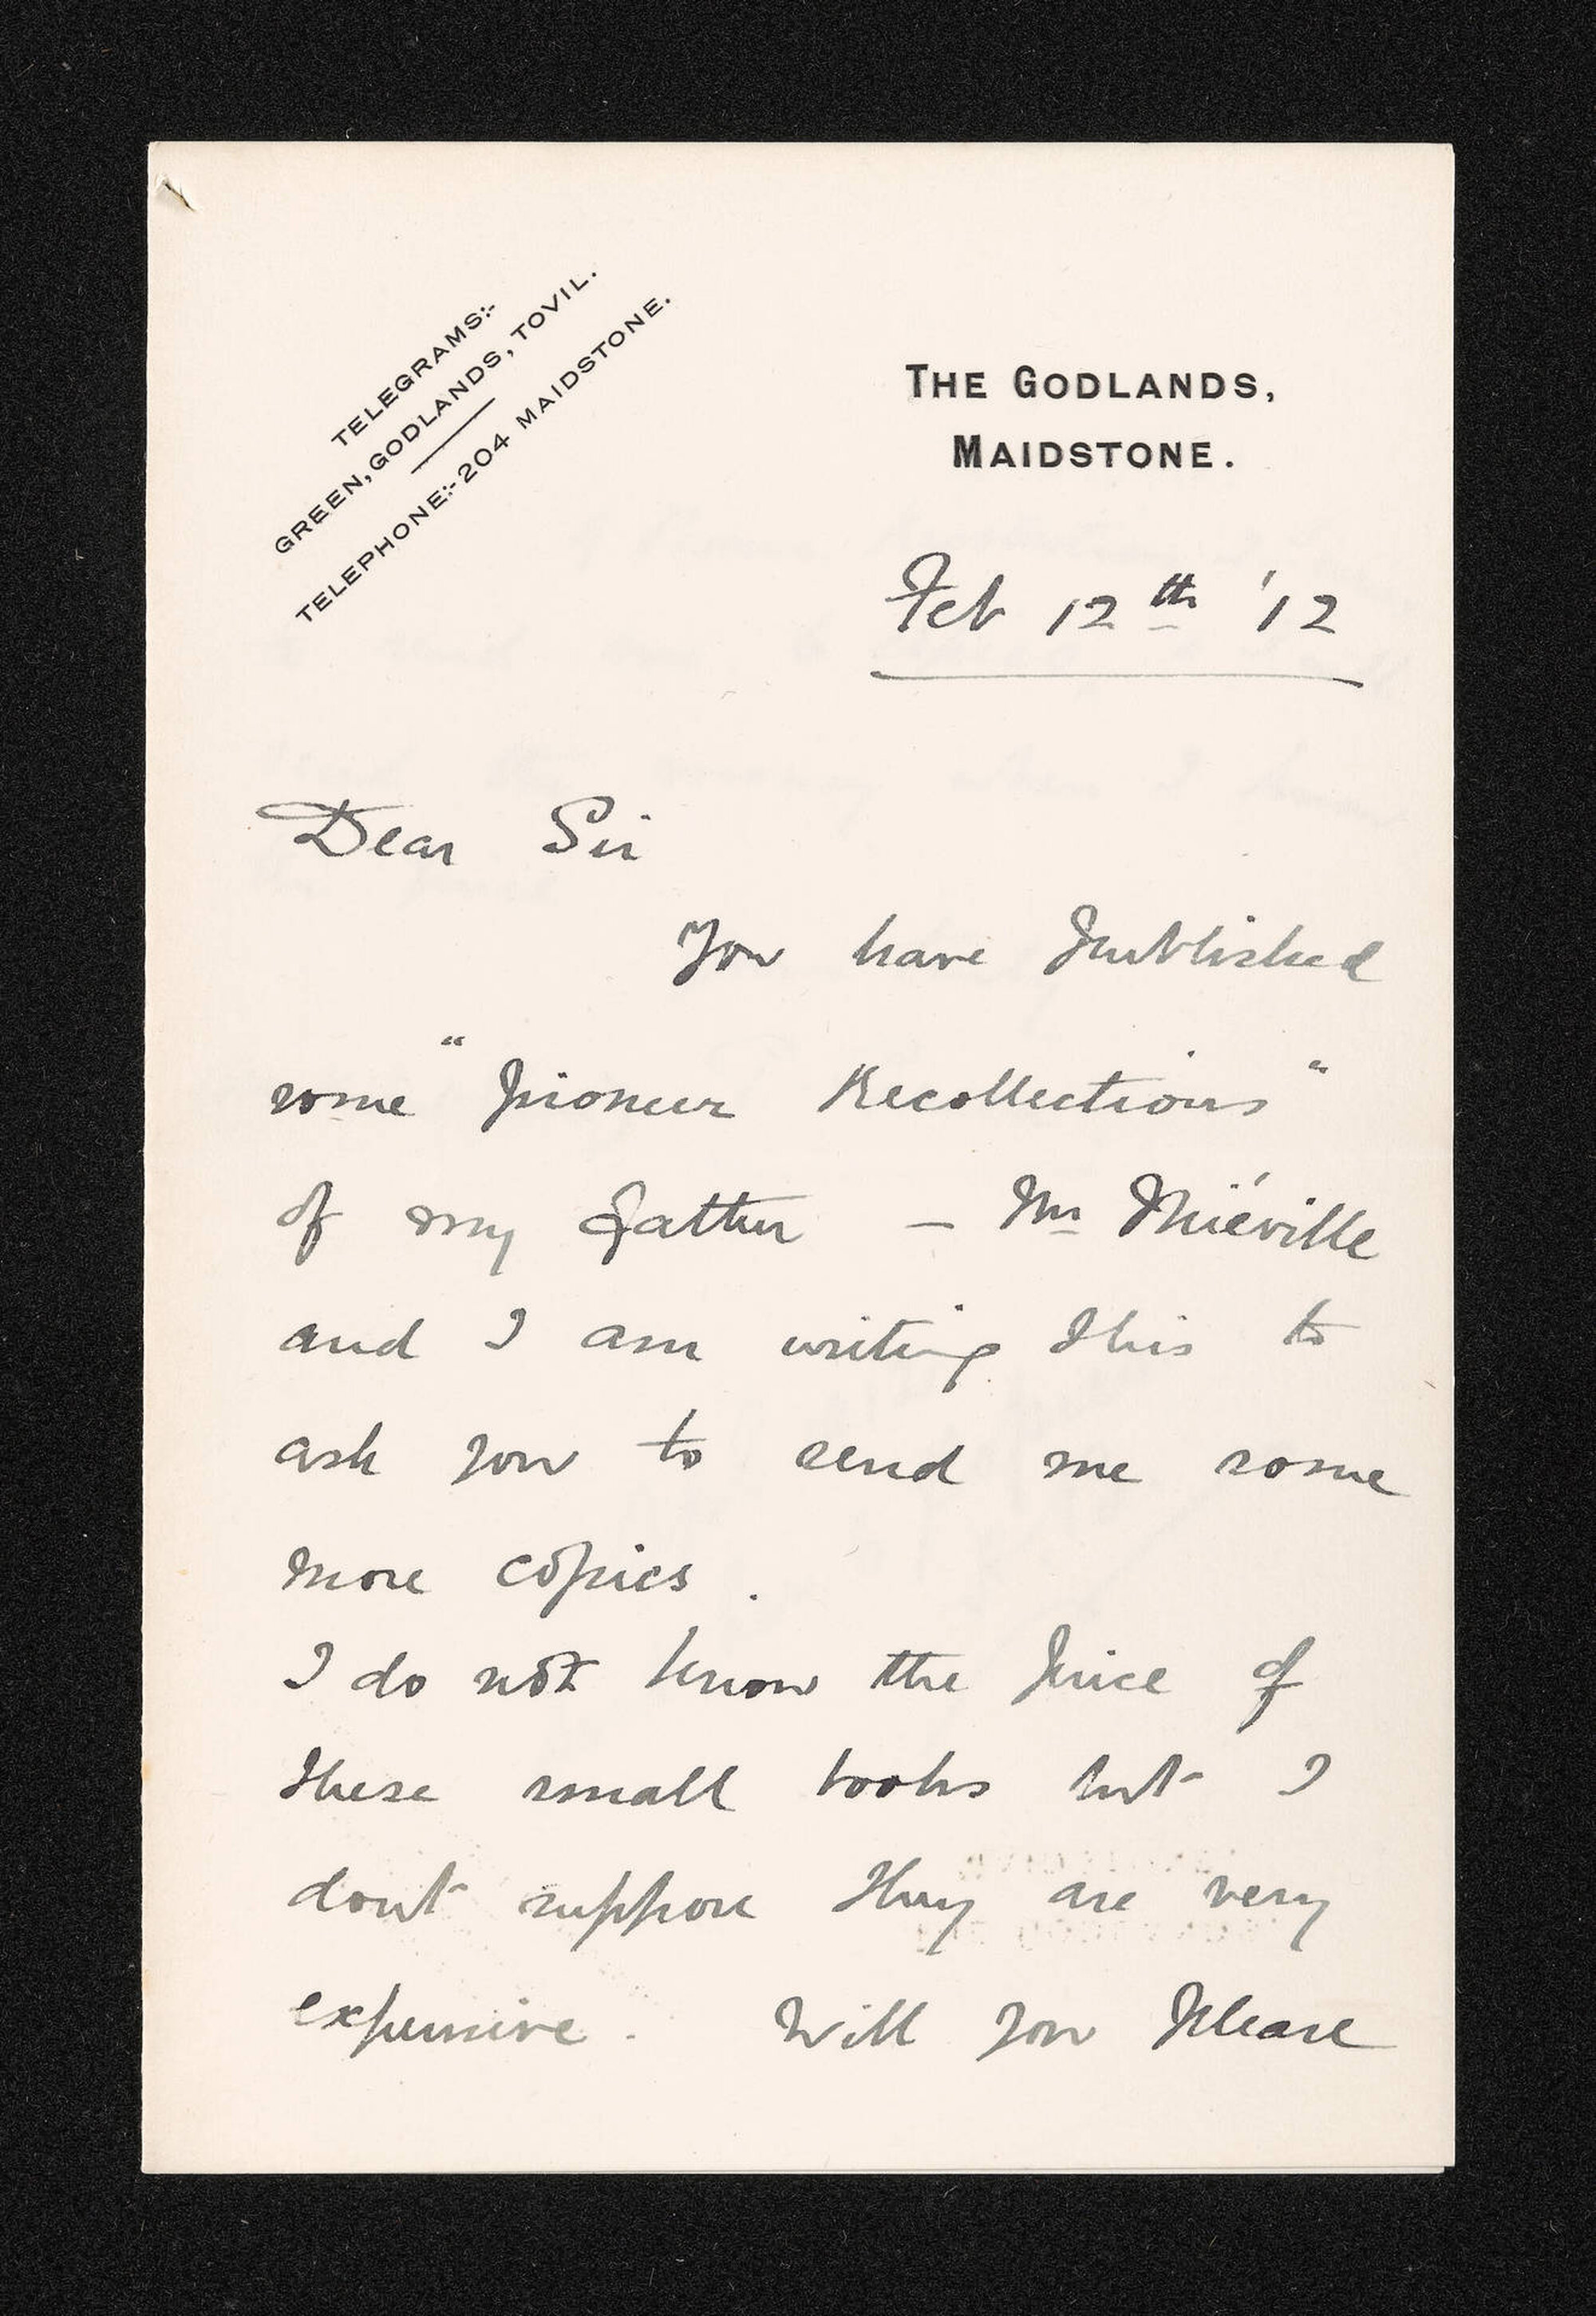 TELEGRAMS:-
GREEN, GODLANDS, TOVIL.
TELEPHONE:-204 MAIDSTONE.
THE GODLANDS,
MAIDSTONE.
Feb 12th '12
Dear Sir
You have published
some "Pioneer Recollections"
of my father – Mr Miéville
and I am writing this to
ask you to send me some
more copies.
I do not know the price of
these small books but I
dont suppose they are very
expensive. Will you please